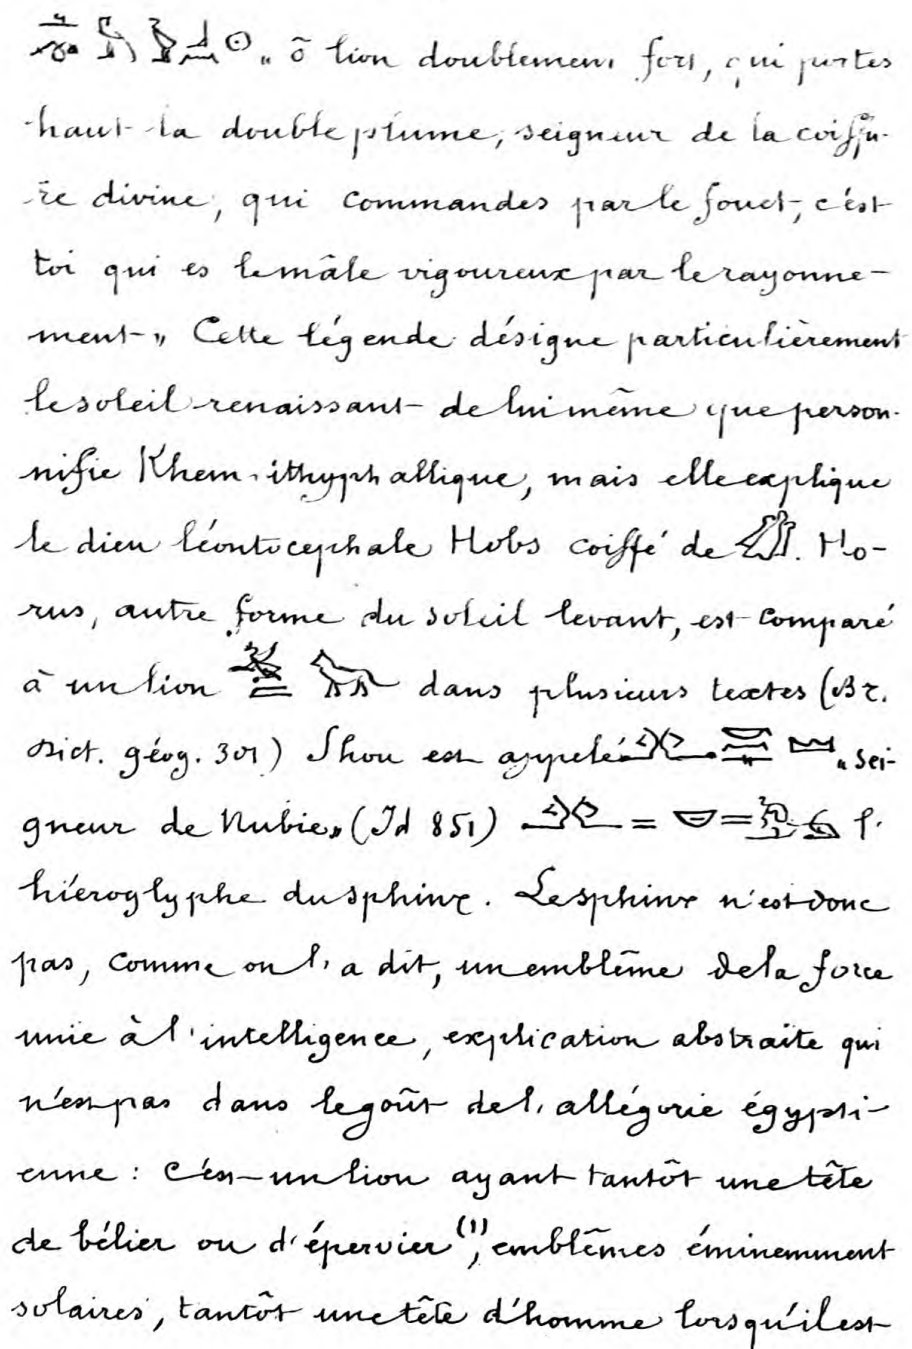 „ ô lion doublement fort, qui portes
haut la double plume, seigneur de la coiffu-
re divine, qui commandes par le fouet, c'est
toi qui es le mâle vigoureux par le rayonne-
ment „ Cette légende désigne particulièrement
le soleil renaissant de lui même que person-
nifie Khem ithyphallique, mais elle explique
le dieu léontocephale Hobs coiffé de . Ho-
rus, autre forme du soleil levant, est comparé
à un lion dans plusieurs textes (Br.
Dict. géog. 301) Shou est appelé „ sei-
gneur de Nubie„ (Id 851) = = l'
hiéroglyphe du sphinx. Le sphinx n'est donc
pas, comme on l'a dit, un emblême de la force
unie à l'intelligence, explication abstraite qui
n'est pas dans le goût de l'allégorie égypti-
enne : c'est un lion ayant tantôt une tête
de bélier ou d'épervier (1), emblêmes éminemment
solaires, tantôt une tête d'homme lorsqu'il est